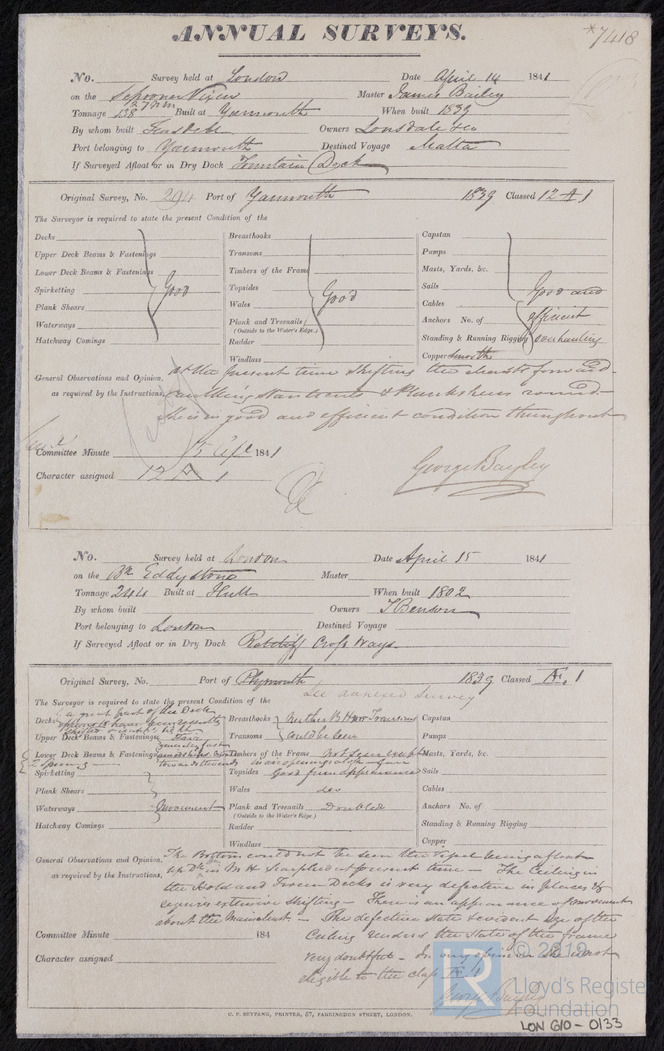 ANNUAL SURVEYS.
*7418
No. Survey held at London Date April 14 1841
on the Schooner Vixen Master James Bailey
Tonnage 138 Built at Yarmouth When built 1839
By whom built Owners Lonsdale & Co
Port belonging to Yarmouth Destined Voyage Malta
If Surveyed Afloat or in Dry Dock Fountain Dock
Original Survey, No. 294 Port of Yarmouth 1839 Classed 12 A 1
The Surveyor is required to state the present Condition of the
Decks Breasthooks Capstan
Upper Deck Beams & Fastenings Transoms Pumps
Lower Deck Beams & Fastenings Timbers of the Frame Masts, Yards, &c.
Spirketting Good Topsides Good Sails Good and
Plank Shears Wales Cables
Waterways Plank and Treenails Anchors No. of efficient
(Outside to the Water's Edge.)
Hatchway Comings Rudder Standing & Running Rigging overhauling
Windlass Copper
General Observations and Opinion, At the present time shifting the sheets forward
as required by the Instructions, caulking Stantients & Plankshears round
She is in good and efficient condition throughout
Committee Minute 15 April 1841
Character assigned 12 A 1
George Bayley
No. Survey held at London Date April 15 1841
on the Br Eddystone Master
Tonnage 244 Built at Hull When built 1802
By whom built Owners T Benson
Port belonging to London Destined Voyage
If Surveyed Afloat or in Dry Dock Ratcliff Cross Ways.
Original Survey, No. Port of Plymouth 1839 Classed Æ 1
See annexed Survey
The Surveyor is required to state the present Condition of the
a great part of the Deck
Decks Breasthooks Neither B Hks nor Transoms Capstan
Upper Deck Beams & Fastenings Fair Transoms could be seen Pumps
Lower Deck Beams & Fastenings Timbers of the Frame Not seen except Masts, Yards, &c.
Spirketting Topsides Good from appearance Sails
Plank Shears Wales do Cables
Waterways Plank and Treenails Doubled Anchors No. of
(Outside to the Water's Edge.)
Hatchway Comings Rudder Standing & Running Rigging
Windlass Copper
General Observations and Opinion, The Bottom could not be seen the Vessel being afloat
as required by the Instructions, present time – The Ceiling in
the Hold and Tween Decks is very defective in places &
requires extensive shifting – There is an appearance of movement
about the Mainmast – The defective state & evident age of the
Committee Minute 184 Ceiling renders the state of the Frame
Character assigned very doubtful – In my opinion She is not
eligible to the class Æ 1
George Bayley
C. F. SEYFANG, PRINTER, 57, FARRINGDON STREET, LONDON.
LR
© 2019
Lloyd's Register
Foundation
LON 610 - 0133